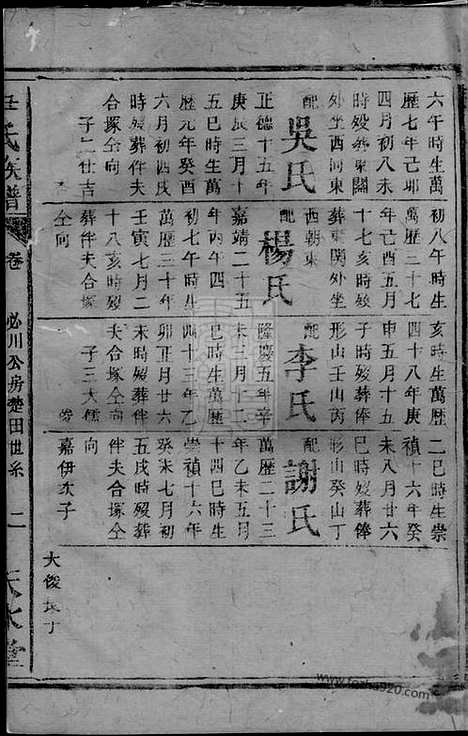 六午時生萬
歷七年己卯
四月初八未
時歿葬東關
外坐酉向東
配吳氏
正德十五年
庚辰三月十
五巳時生萬
歷元年癸酉
六月初四戌
時歿葬伴夫
合塚仝向
子二仕吉
初八午時生
萬歷三十七
年己酉五月
十七亥時歿
葬東關外坐
西朝東
配楊氏
嘉靖二十五
年丙午四月
初七午時生
萬歷三十年
壬寅七月二
十八亥時歿
葬伴夫合塚
仝向
亥時生萬歷
四十八年庚
申五月十五
子時歿葬俸
形山壬山丙
配李氏
隆慶五年辛
未三月十二
時生萬歷
四十三年乙
卯正月廿六
未時歿葬伴
夫合塚仝向
子三大儒
二巳時生崇
禎十六年癸
未八月廿六
巳時歿葬俸
形山癸山丁
配謝氏
萬歷二十三
年乙未五月
十四巳時生
崇禎十六年
癸未七月初
五戌時歿葬
伴夫合塚仝
向
嘉伊次子
大俊長子
氏族譜 卷 必川公房楚田世系 二 天水堂
www.fozhu920.com